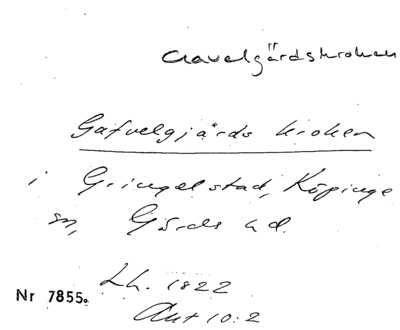 Gavelgärdskroken
Gafvelgjärds kroken
i Gringelstad, Köpinge
sn, Gärds hd.
Lh. 1822
Nr 7855.
Akt 10:2